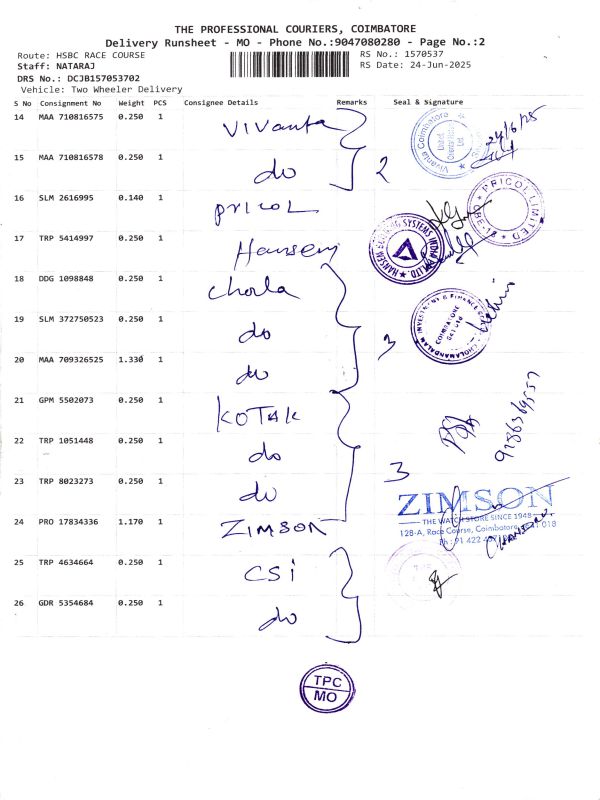 THE PROFESSIONAL COURIERS, COIMBATORE
Delivery Runsheet - MO - Phone No.:9047080280 - Page No.:2
Route: HSBC RACE COURSE RS No.: 1570537
Staff: NATARAJ RS Date: 24-Jun-2025
DRS No.: DCJB157053702
Vehicle: Two Wheeler Delivery
S No Consignment No Weight PCS Consignee Details Remarks Seal & Signature
14 MAA 710816575 0.250 1 Vivanta
Vivanta Coimbatore
United
Ltd
24/6/25
15 MAA 710816578 0.250 1 do 2
16 SLM 2616995 0.140 1 PRICOL
PRICOL LIMITED
CBE-18
17 TRP 5414997 0.250 1 Hansem
HANSEM BUILDING SYSTEMS INDIA PVT LTD.
18 DDG 1098848 0.250 1 Chola
19 SLM 372750523 0.250 1 do 3
CHOLAMANDALAM INVESTMENT & FINANCE
COIMBATORE
641 018
20 MAA 709326525 1.330 1 do
21 GPM 5502073 0.250 1 KOTAK
9186369557
22 TRP 1051448 0.250 1 do
23 TRP 8023273 0.250 1 do 3
24 PRO 17834336 1.170 1 ZIMSON
ZIMSON
THE WATCH STORE SINCE 1948
128-A, Race Course, Coimbatore, 641 018
Ph : 91 422
25 TRP 4634664 0.250 1 CSi
26 GDR 5354684 0.250 1 do
TPC
MO